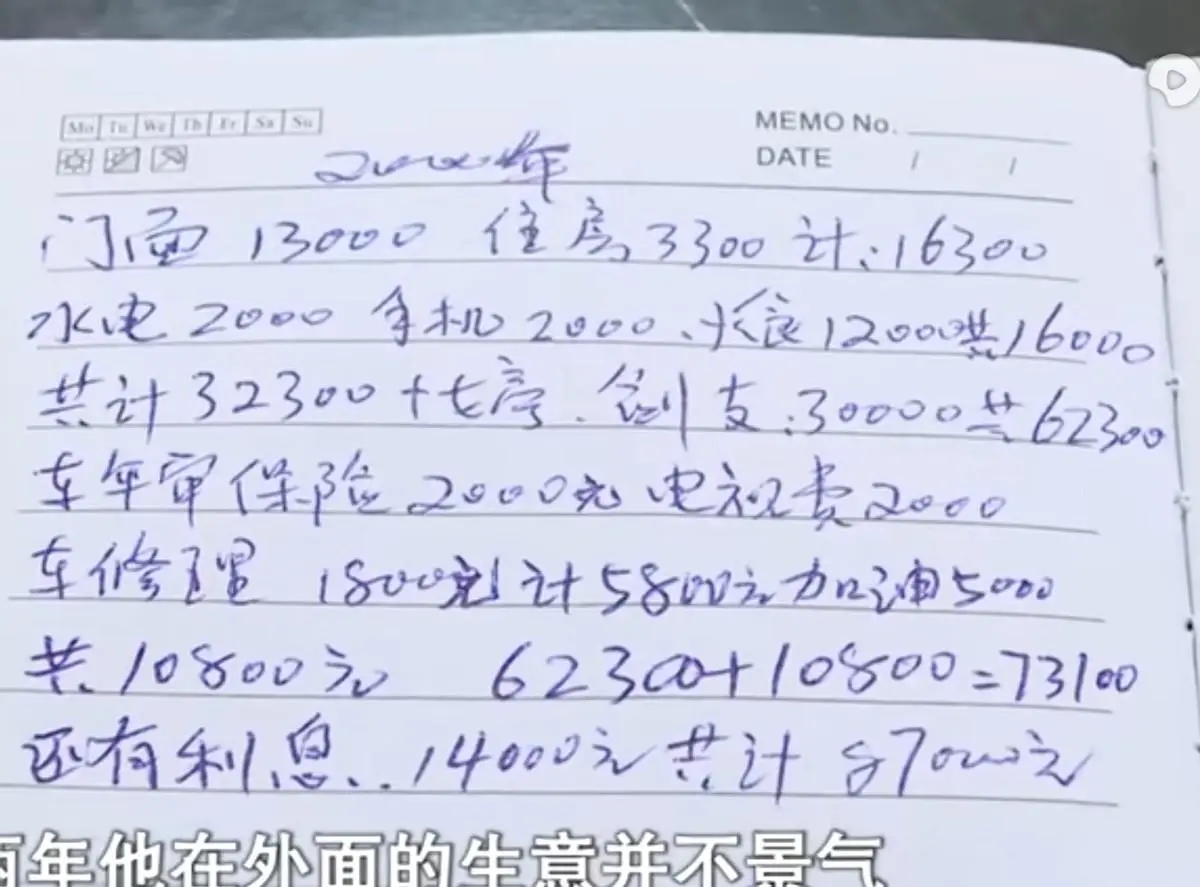 Mo Tu We Th Fr Sa Su
MEMO No.
DATE / /
2000年
门面 13000 住房 3300 计:16300
水电 2000 手机 2000、伙食 12000共16000
共计 32300 + 支:30000共62300
车年审保险 2000元 电视费2000
车修理 1800元 计5800元加油5000
共10800元 62300+10800=73100
还有利息...14000元共计 87000元
两年他在外面的生意并不景气